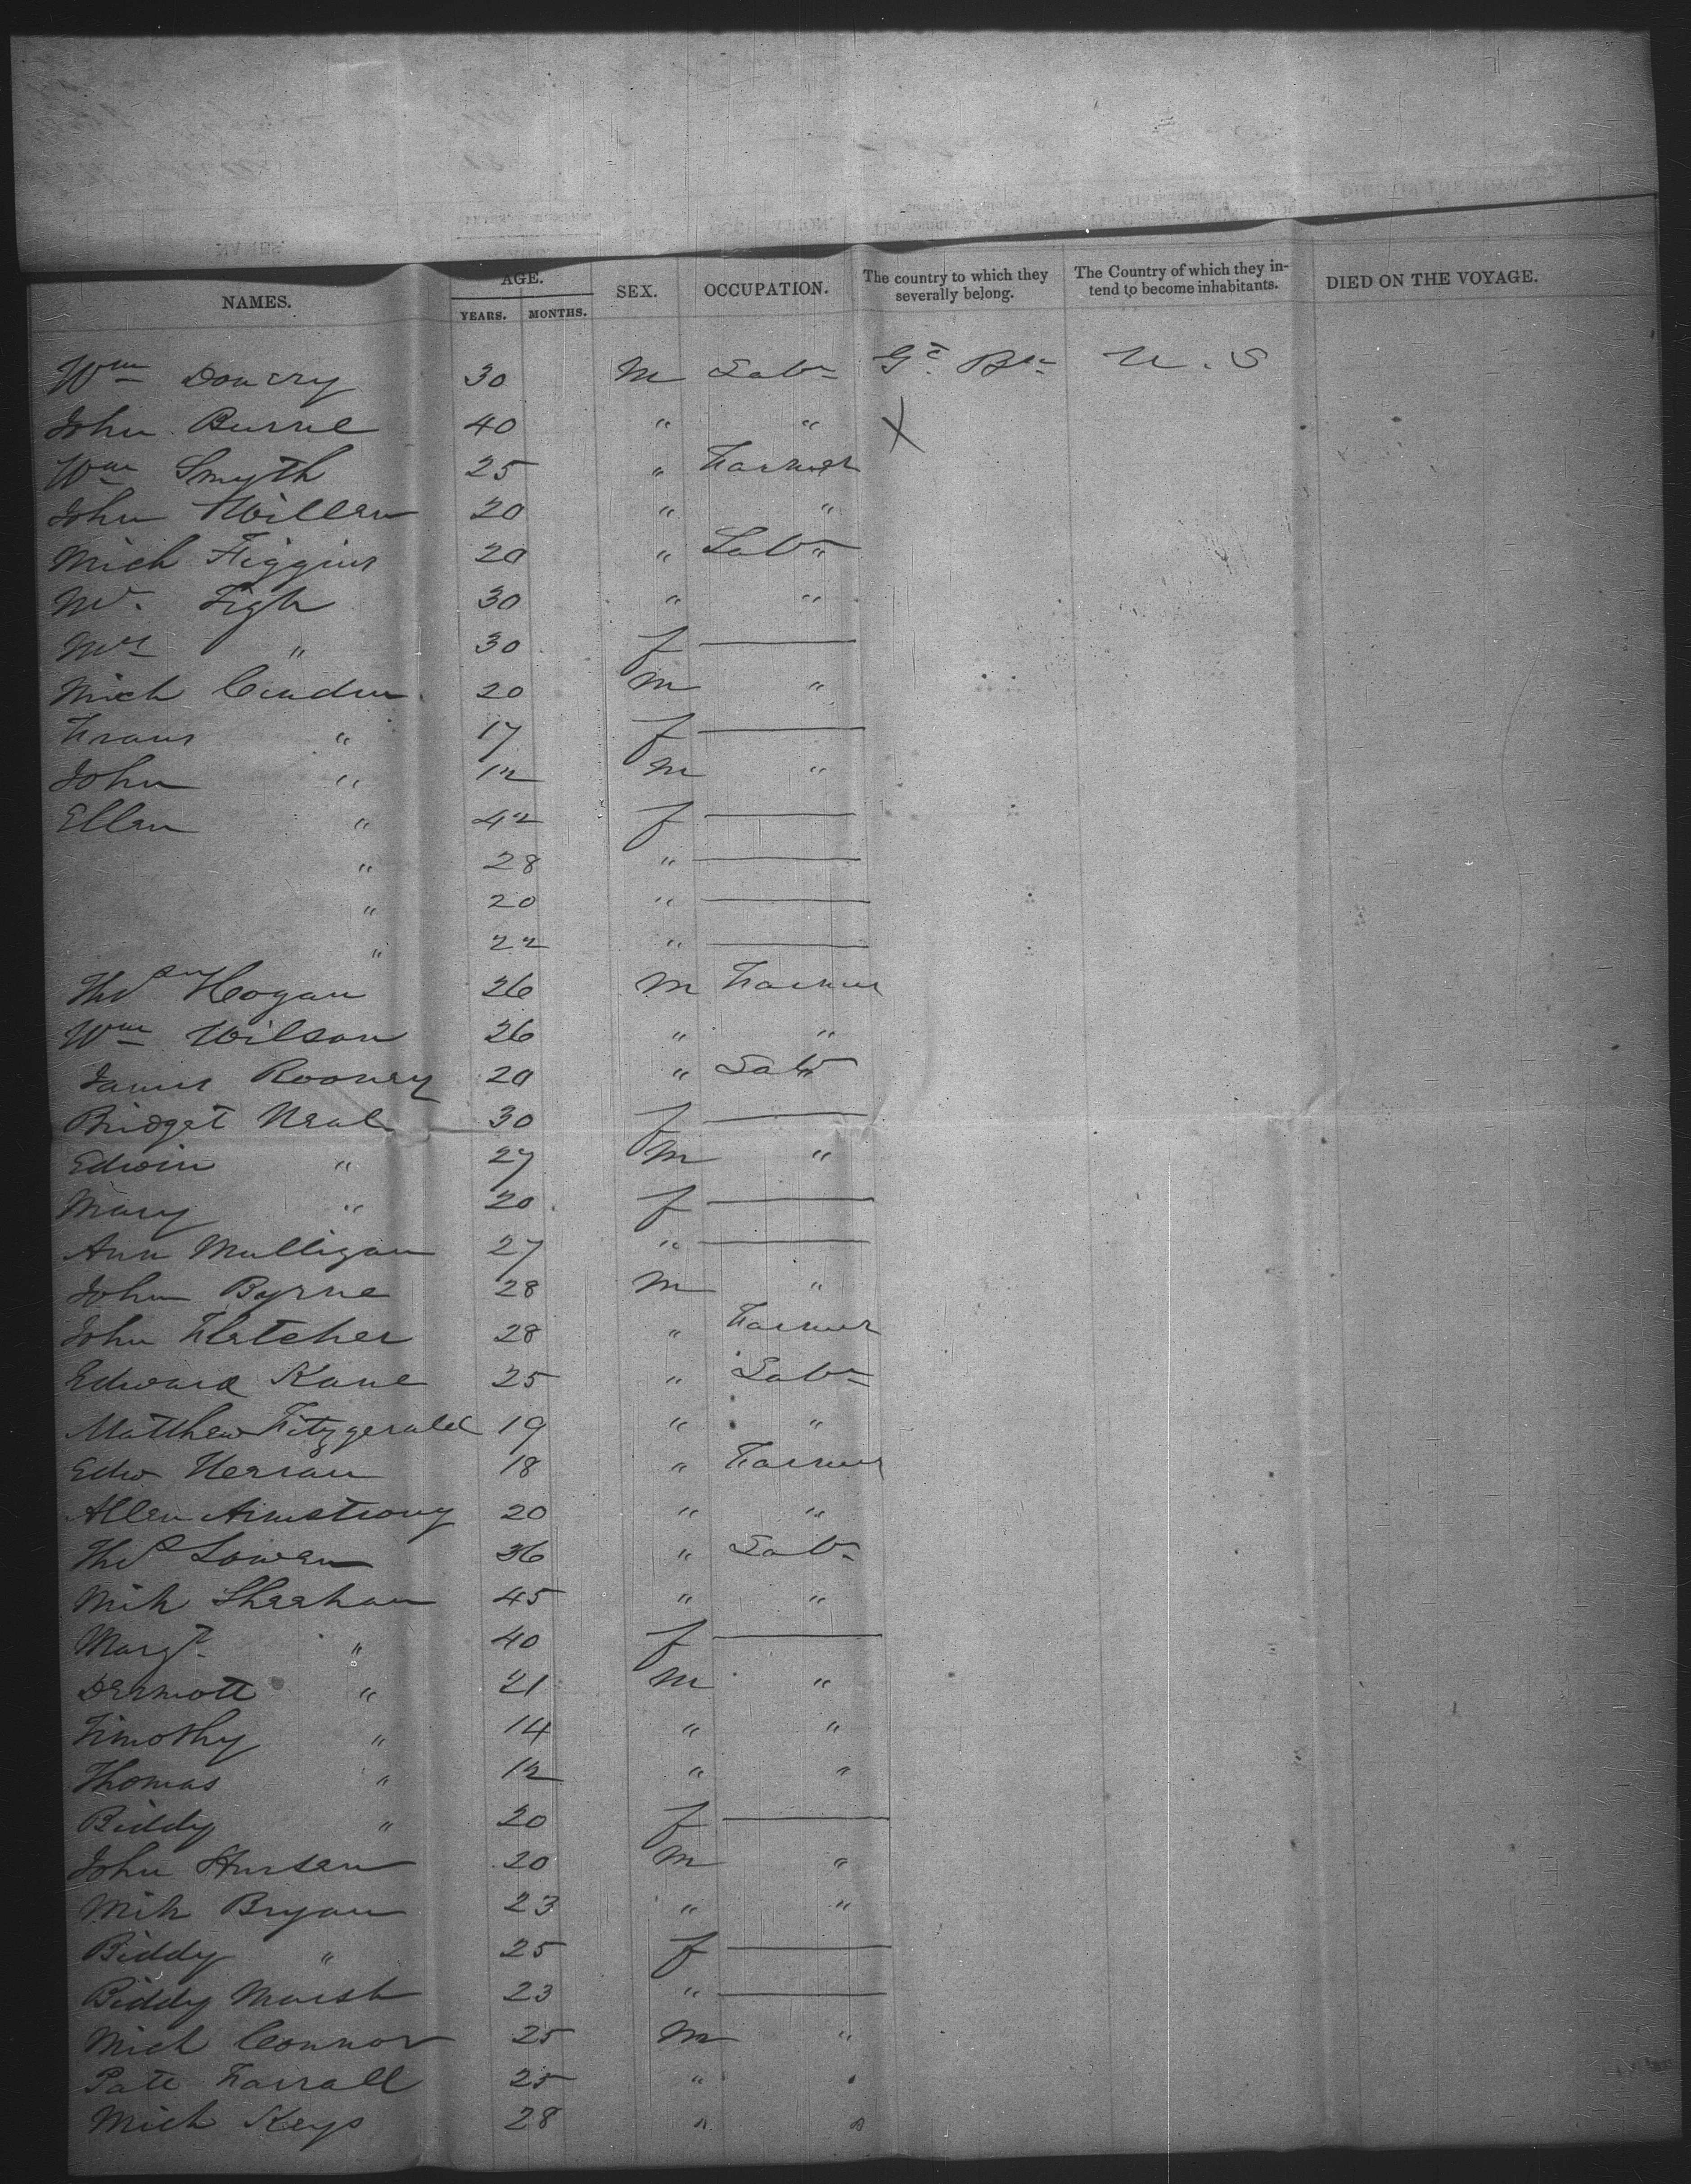 NAMES. AGE. SEX. OCCUPATION. The country to which they severally belong. The Country of which they intend to become inhabitants. DIED ON THE VOYAGE.
YEARS. MONTHS.
Wm 30 M Labr Gt Bn U. S
John Burne 40 " " X
Wm Smyth 25 " Farmer
John Willen 20 " "
Mich Figgins 20 " Labr "
Mr. Figh 30 " "
Mrs " 30 f
Mich 20 m "
Frans " 17 f
John " 12 m "
Ellen " 42 f
" 28 "
" 20 "
" 22 "
Thos Hogan 26 M Farmer
Wm Wilson 26 " "
James Rooney 20 " Labr
Bridget Neal 30 f
Edwin " 27 m "
Mary " 20 f
Ann Mulligan 27 "
John Byrne 28 m "
John Fletcher 28 " Farmer
Edward Kane 25 " Labr
Matthew Fitzgerald 19 " "
Edw 18 " Farmer
Allen Armstrong 20 " "
Thos Lowen 36 " Labr
Mich Sheehan 45 " "
Margt " 40 f
Dermott " 21 m "
Timothy " 14 " "
Thomas " 12 " "
Biddy " 20 f
John 20 m "
Mich Bryan 23 " "
Biddy " 25 f
Biddy Marsh 23 "
Mich Connor 25 m "
Patt Farrall 25 " "
Mich Keys 28 " "